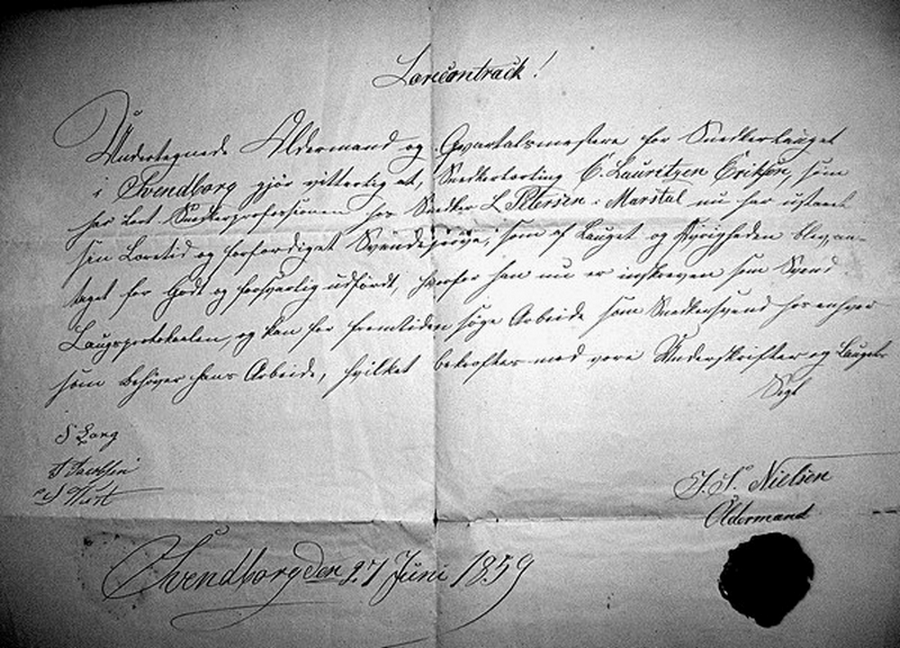 Lærecontrackt!
Undertegnede Oldermand og Qvartalsmestere for Snedkerlauget
i Svendborg gjør vitterligt at, Snedkerlærling C. Lauritzen Eriksen, som
har lært Snedkerprofessionen hos Snedker L Petersen i Marstal nu har udstaaet
sin Læretid og forfærdiget Svendeprøve, som af Lauget og Øvrigheden blev an-
taget for godt og forsvarlig udført, hvorfor han nu er inskreven som Svend
Laugsprotokoelen, og kan for fremtiden søge Arbeide som Snedkersvend hos enhver
som behøver hans Arbeide, hvilket bekræftes med vore Underskrifter og Laugets
Segl
S Lang
J Jacobsen
J. S. Nielsen
Oldermand
Svendborg den 27 Juni 1859